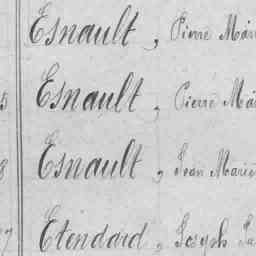 Esnault, Pierre Mar
5 Esnault, Pierre Ma
8 Esnault, Jean Marie
7 Etendard, Joseph